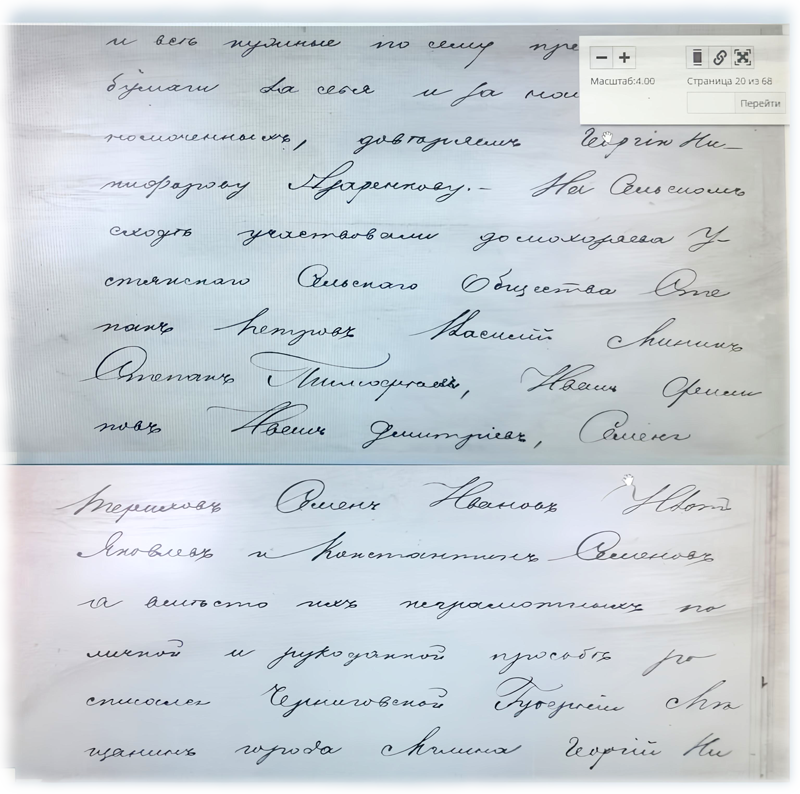 и всѣ нужные по сему пре
Масштаб:4.00 Страница 20 из 68
Перейти
бумаги за себя и за
номоченныхъ, довѣряемъ Георгію Ни-
кифорову Азаренкову.- На Сельскомъ
сходѣ участвовали домохозяева У-
стянскаго Сельскаго Общества Сте
панъ Петровъ Василій Мининъ
Степанъ Тимофѣевъ, Иванъ Филип
повъ Иванъ Дмитріевъ, Семенъ
Семенъ Ивановъ
Яковлевъ и Константинъ Семеновъ
а вмѣсто ихъ неграмотныхъ по
личной и рукоданной просьбѣ ро
списался Черниговской Губерніи Мѣ
щанинъ города Мглина Георгій Ни